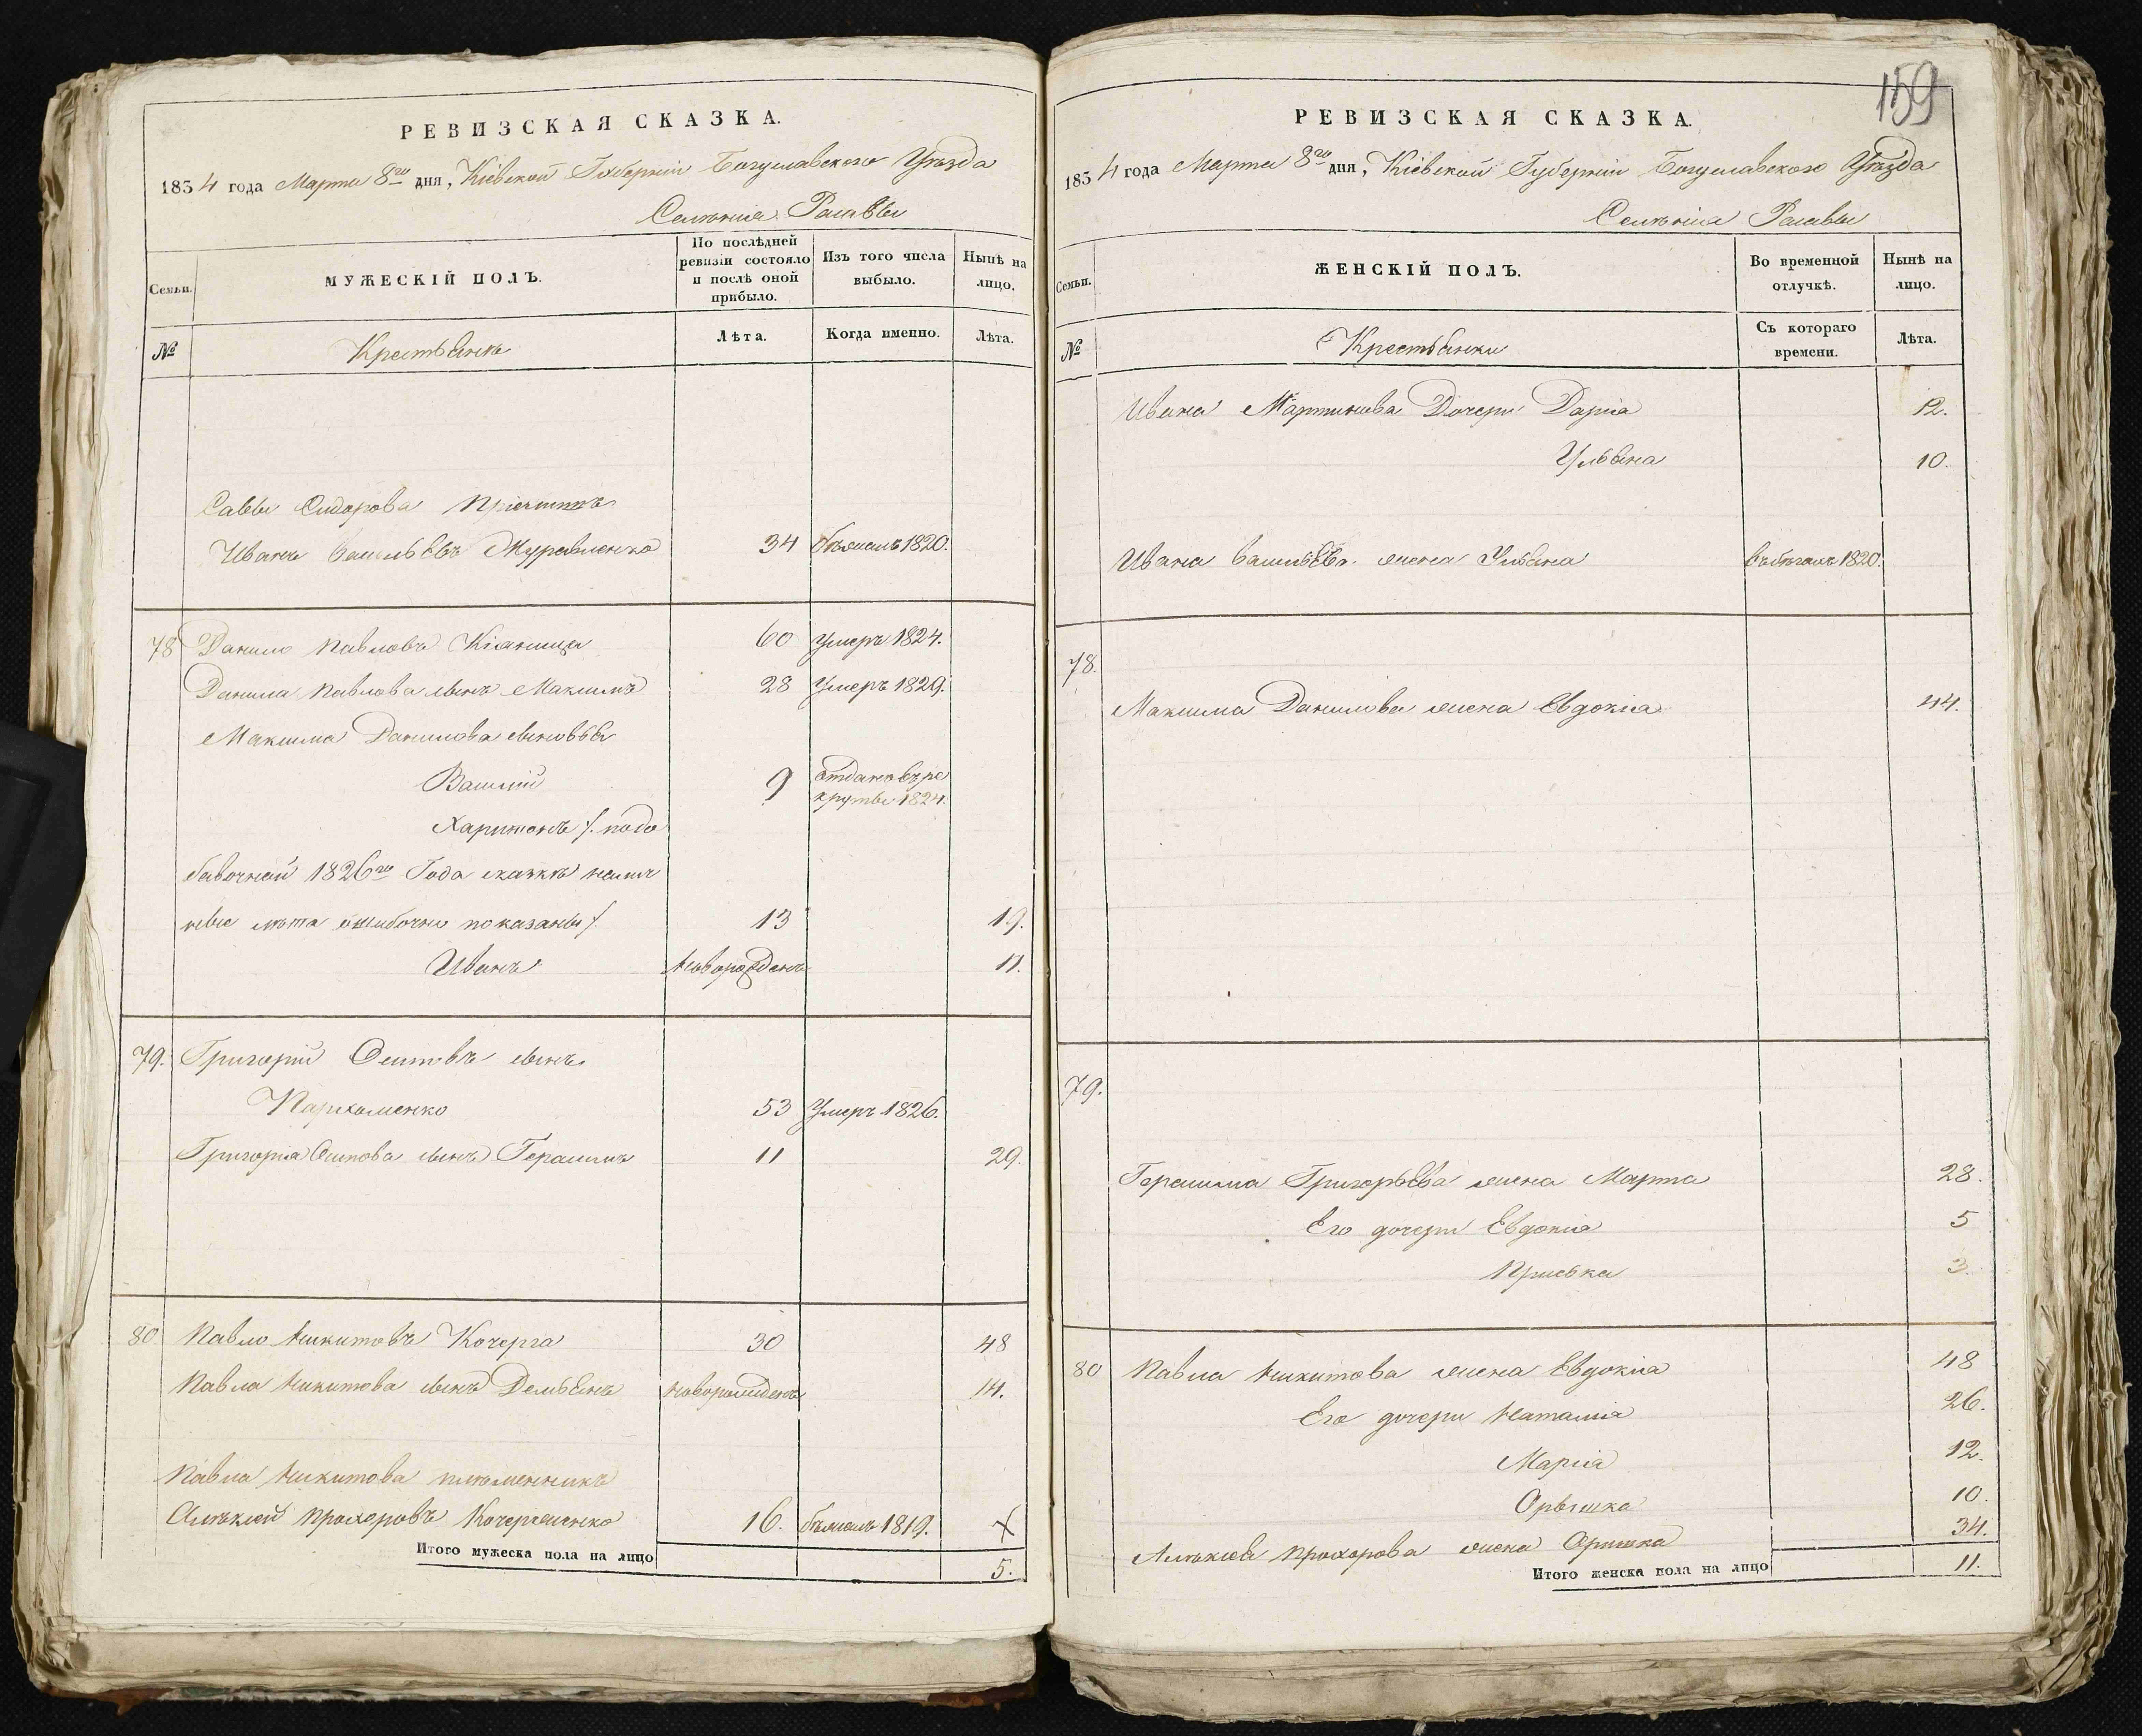 РЕВИЗСКАЯ СКАЗКА.
1834 года Марта 8го дня, Кіевской Губерніи Богуславскаго Уѣзда
Селѣнія Расавы
Семьи.
МУЖЕСКІЙ ПОЛЪ.
По послѣдней ревизіи состояло и послѣ оной прибыло.
Изъ того числа выбыло.
Нынѣ на лицо.
№
Крестьянъ
Лѣта.
Когда именно.
Лѣта.
Саввы Сидорова
Иванъ Васильевъ Журавленко 34 1820.
78 Данило Павловъ Кіяница 60 Умеръ 1824.
Данила Павлова сынъ Максимъ 28 Умеръ 1829.
Максима Данилова сыновья
Василій 9 отданъ въ ре
круты 1824.
Харитонъ /. по до
бавочной 1826го Года сказкѣ
лѣта ошибочно показаны /. 13 19.
Иванъ новорожденъ 11.
79. Григорій Осиповъ сынъ
Пархоменко 53 Умеръ 1826.
Григорія Осипова сынъ Герасимъ 11 29.
80 Павло Никитовъ Кочерга 30 48
Павла Никитова сынъ Демьянъ новорожденъ 14.
Павла Никитова племенникъ
Алѣксей Прохоровъ 16. бѣжалъ 1819. X
Итого мужеска пола на лицо 5.
159
РЕВИЗСКАЯ СКАЗКА.
1834 года Марта 8го дня, Кіевской Губерніи Богуславскаго Уѣзда
Селѣнія Расавы
Семьи.
ЖЕНСКІЙ ПОЛЪ.
Во временной отлучкѣ.
Нынѣ на лицо.
№
Крестьянки
Съ котораго времени.
Лѣта.
Ивана Мартинова Дочери Дарія 12.
Ульяна 10.
Ивана Васильева жена Ульяна въ бѣгахъ 1820.
78.
Максима Данилова жена Евдокія 44.
79.
Герасима Григорьева жена Марта 28.
Его дочери Евдокія 5
Приська 3.
80 Павла Никитова жена Евдокія 48
Его дочери Наталія 26.
Марія 12.
Орышка 10.
Алѣксея Прохорова жена Оришка 34.
Итого женска пола на лицо 11.